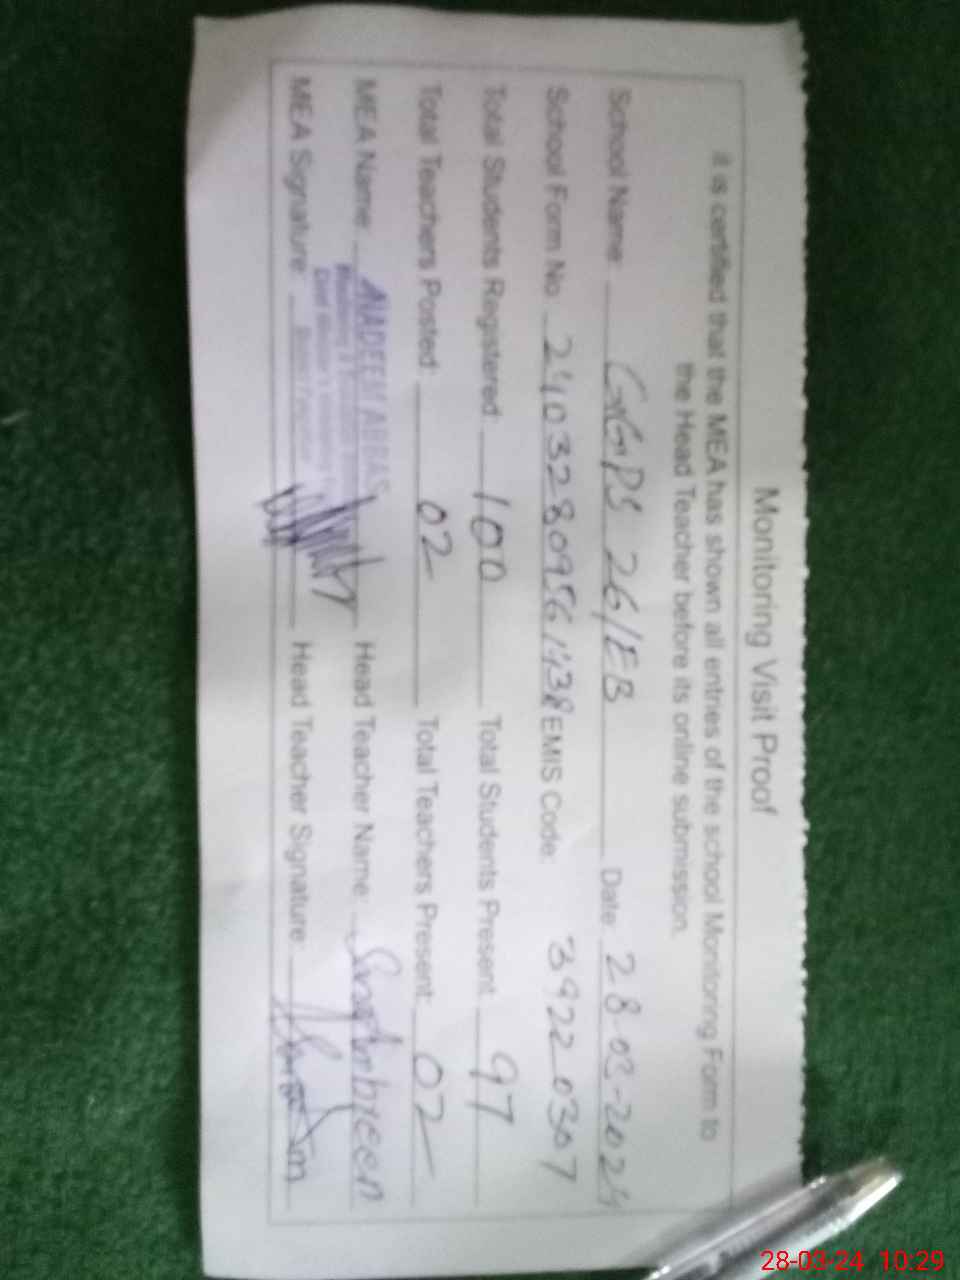 Monitoring Visit Proof
it is certified that the MEA has shown all entries of the school Monitoring Form to
the Head Teacher before its online submission.
School Name: GGPS 26/EB Date 28-03-2024
School Form No. 2403280956143 EMIS Code: 39220307
Total Students Registered: 100 Total Students Present: 97
Total Teachers Posted: 02 Total Teachers Present: 02
MEA Name: NADEEM ABBAS Head Teacher Name:
MEA Signature: Head Teacher Signature:
28-03-24 10:29